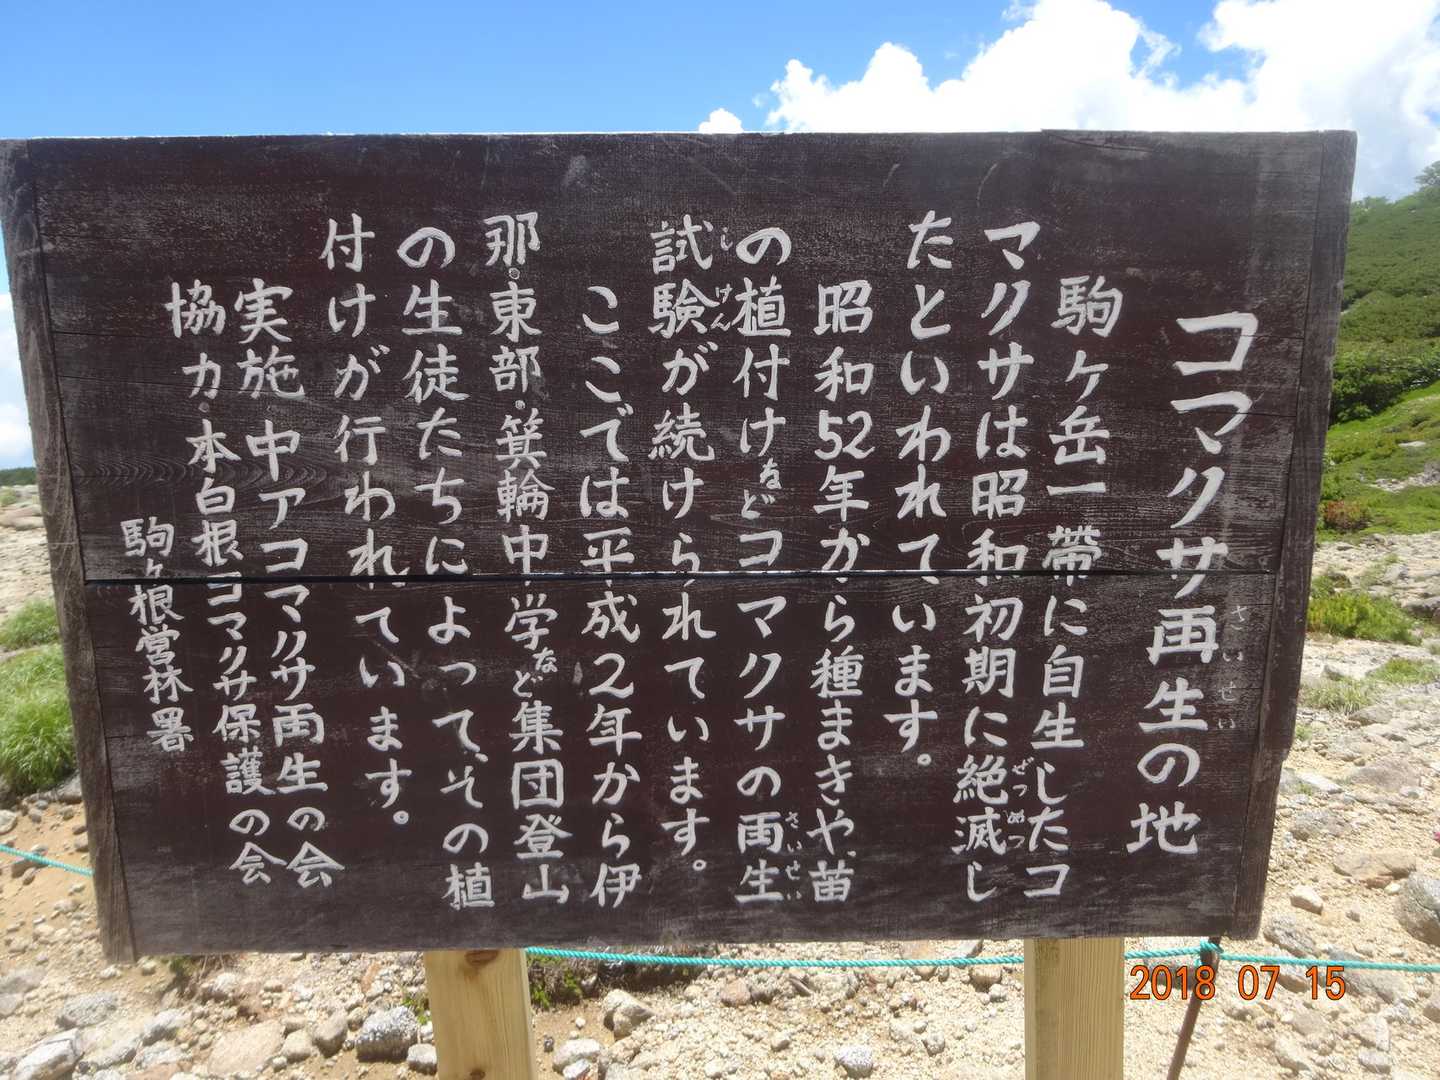 コマクサ再生の地
さいせい
駒ヶ岳一帯に自生したコ
マクサは昭和初期に絶滅し
ぜつめつ
たといわれています。
昭和52年から種まきや苗
の植付けなどコマクサの再生
さいせい
試験が続けられています。
しけん
ここでは平成2年から伊
那・東部・箕輪中学など集団登山
の生徒たちによって、その植
付けが行われています。
実施 中アコマクサ再生の会
協力・本白根コマクサ保護の会
駒ヶ根営林署
2018 07 15